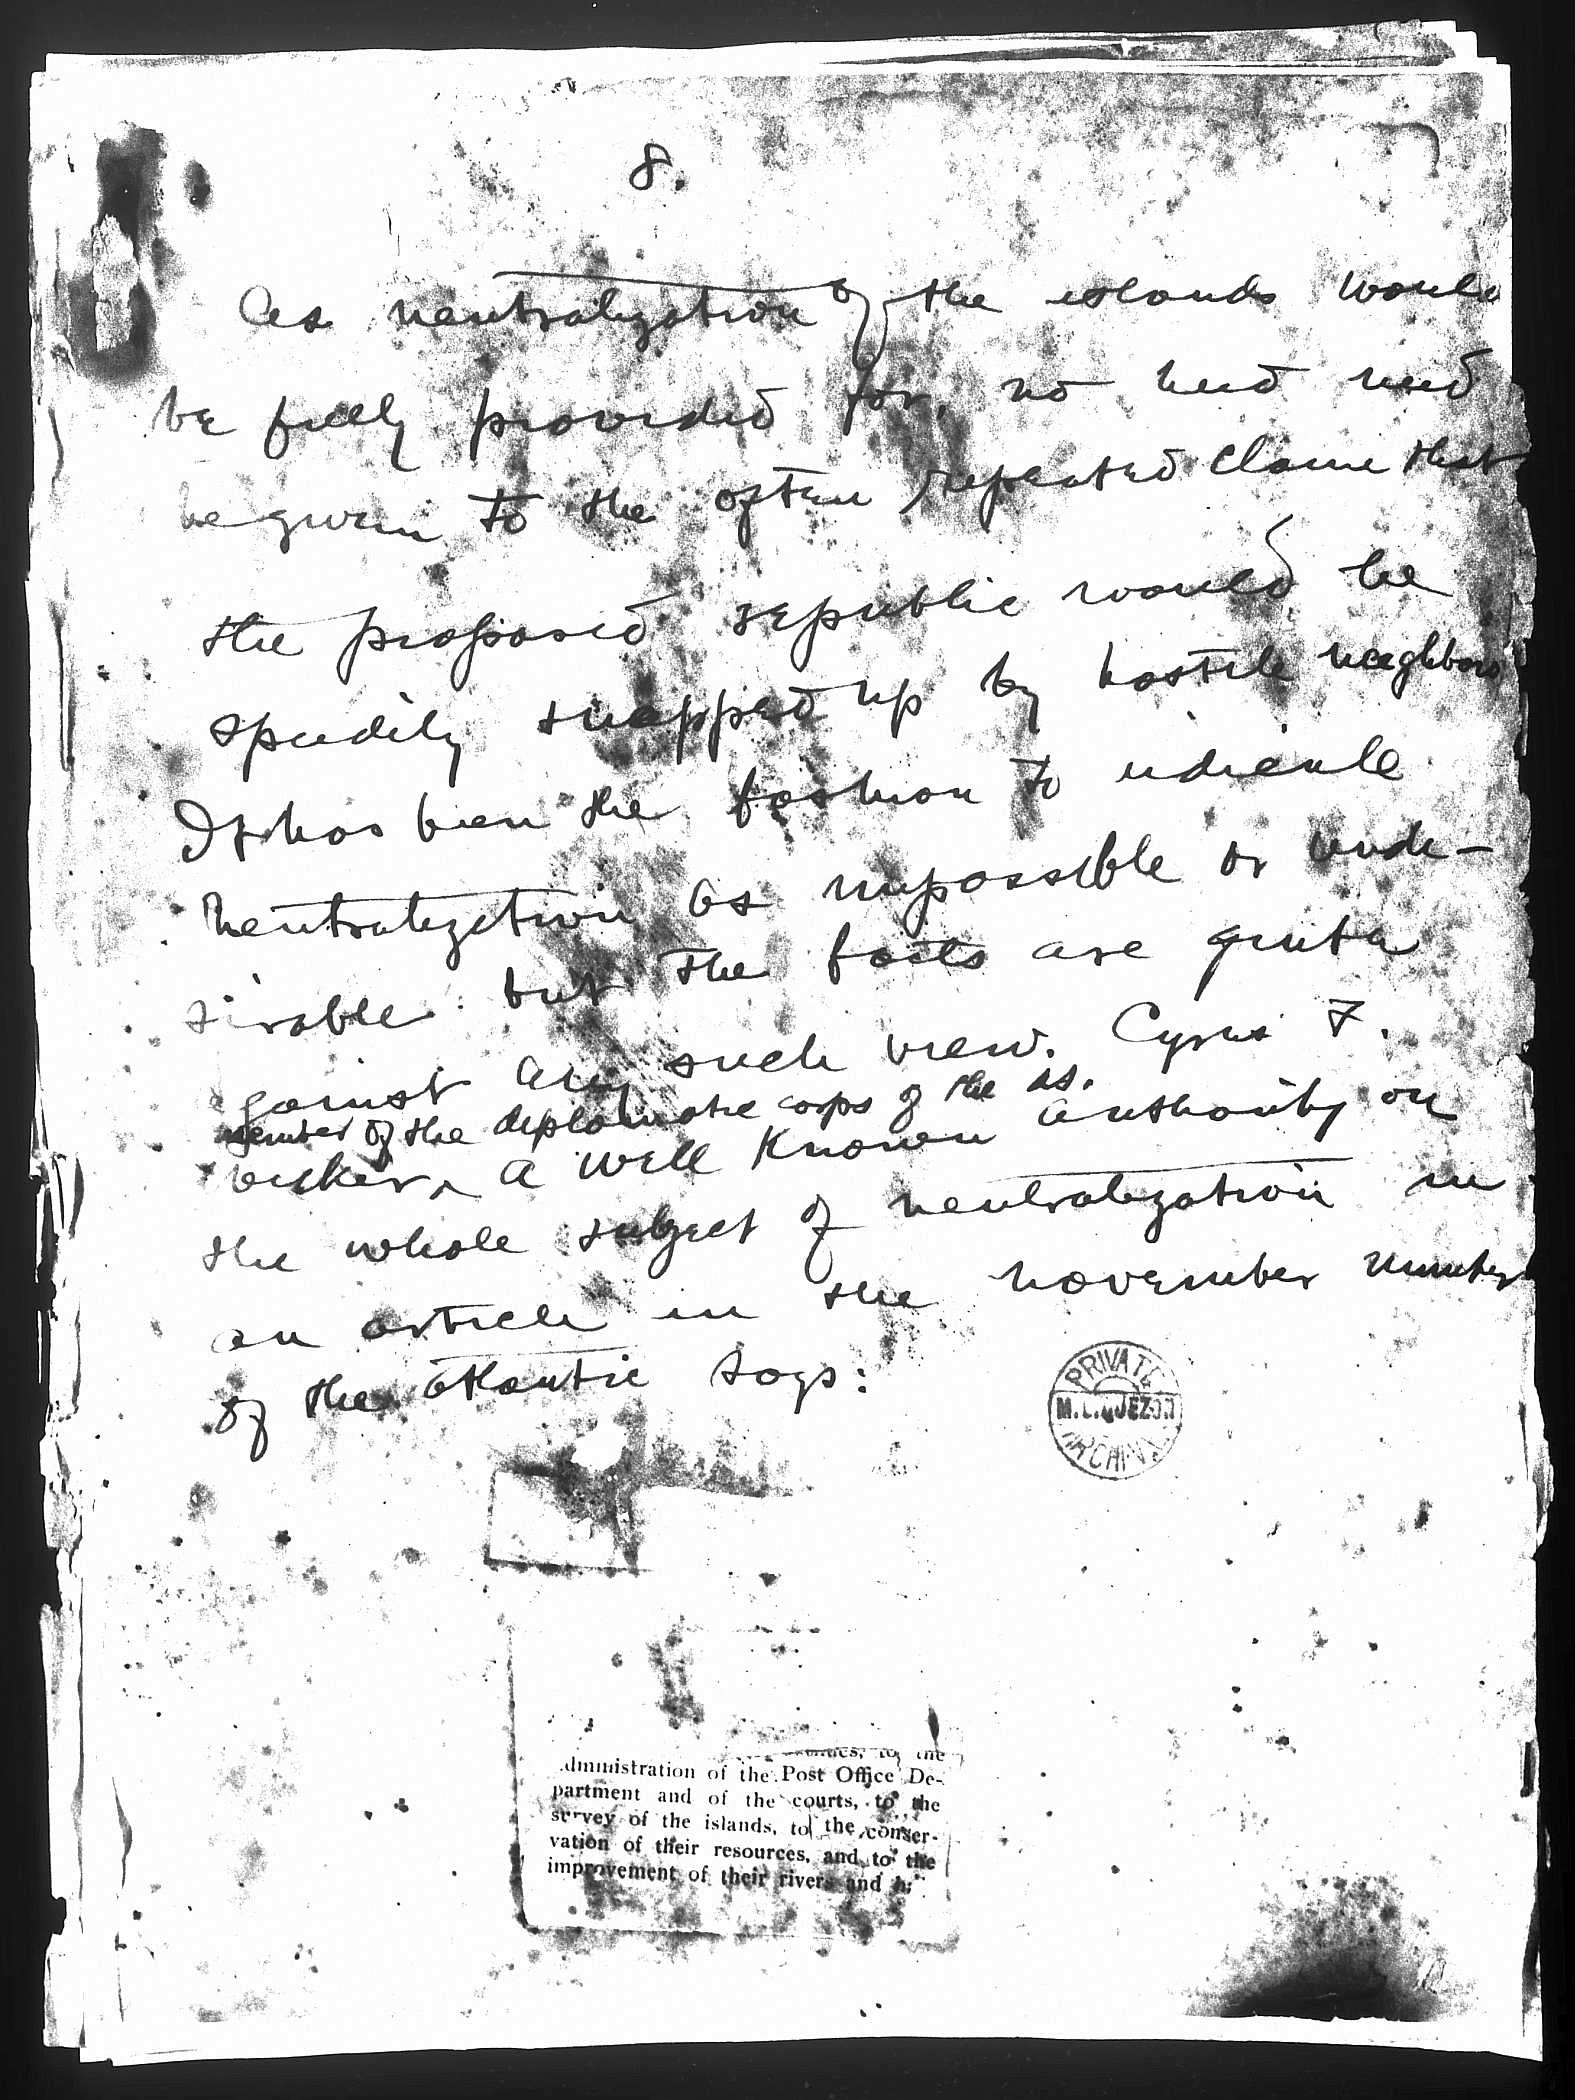 8.
As neutralization of the islands would
be fully provided for, no heed need
be given to the often repeated claim that
the proposed republic would be
speedily snapped up by hostile neighbors
It has been the fashion to ridicule
neutralization as impossible or unde-
sirable but the facts are quite
gainst any such view. Cyrus F.
member of the diplomatic corps of the US.
Wicker, a well known authority on
the whole subject of neutralization in
an article in the November number
of the Atlantic says:
PRIVATE
M.L.QUEZON
ARCHIVE
to the
dministration of the Post Office De-
partment and of the courts, to the
survey of the islands, to the conser-
vation of their resources, and to the
improvement of their rivers and